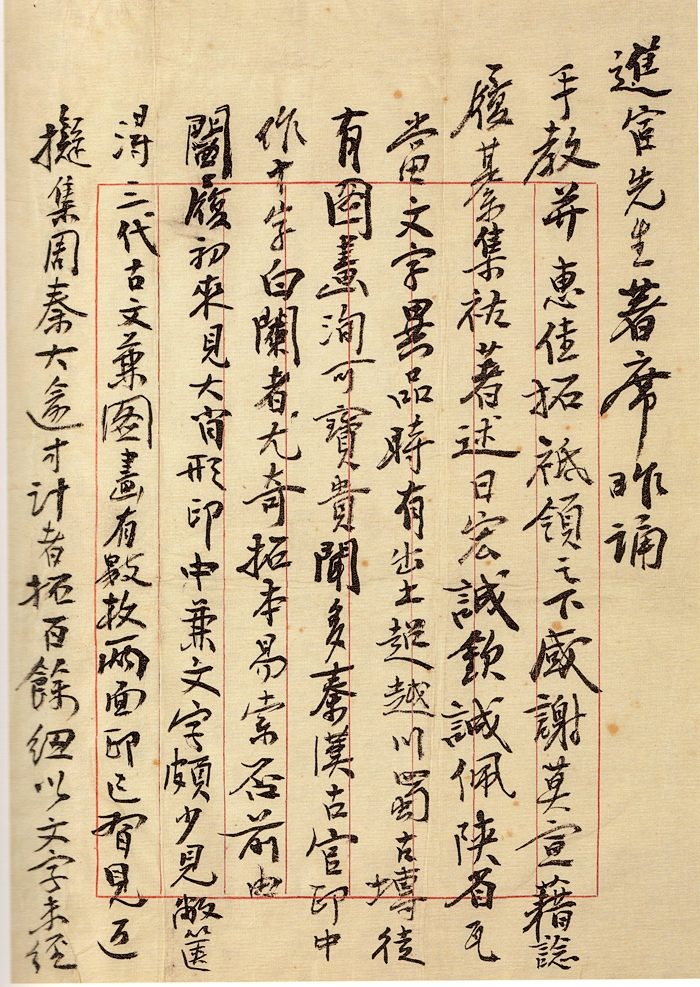 進宦先生著席昨誦
手教并惠佳拓祗領之下感謝莫宣藉諗
履綦集祜著述日宏誠欽誠佩陝省瓦
當文字異品時有出土超越川蜀古塼徒
有圖畫洵可寶貴聞多秦漢古官印中
作十字白闌者尤奇拓本易索否前由
閩履初來見大肖形印中兼文字頗少見敝篋
得三代古文兼圖畫有數枚兩面印已有見近
擬集周秦大逾寸計者拓百餘紐以文字未經